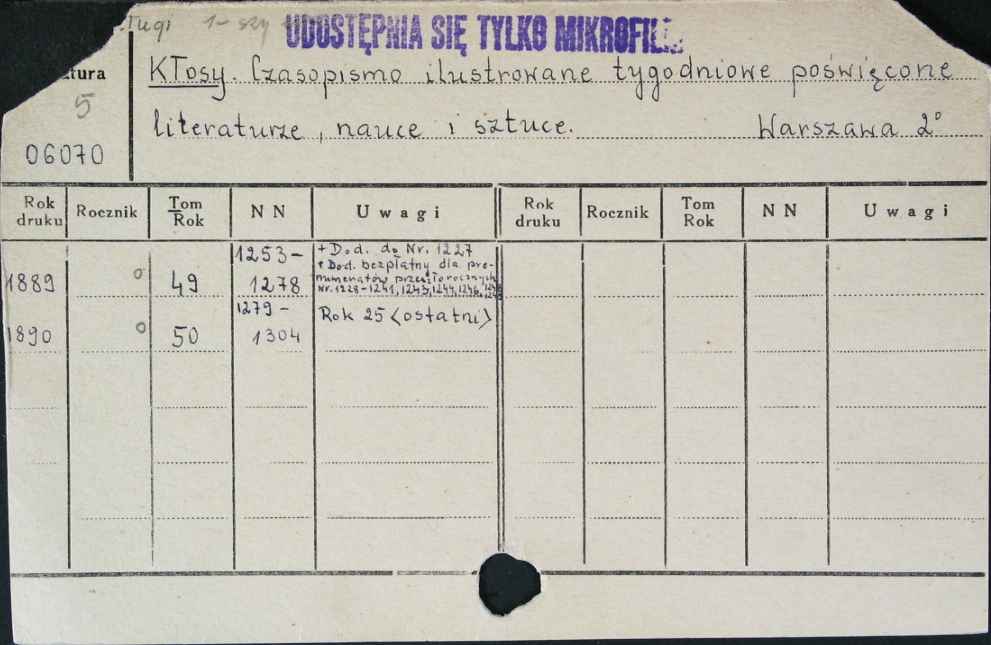 ługi 1-szy
UDOSTĘPNIA SIĘ TYLKO MIKROFIL
tura
5
06070
Kłosy. Czasopismo ilustrowane tygodniowe poświęcone
literaturze, nauce i sztuce. Warszawa 2°
Rok druku Rocznik Tom Rok NN Uwagi Rok druku Rocznik Tom Rok NN Uwagi
1889 o 49 1253-1278 + Dod. do Nr. 1227
+ Dod. bezpłatny dla pre-
numeratorów przeszłorocznych
Nr. 1228-1241, 1243, 1244, 1246,
1890 o 50 1279-1304 Rok 25 <ostatni>